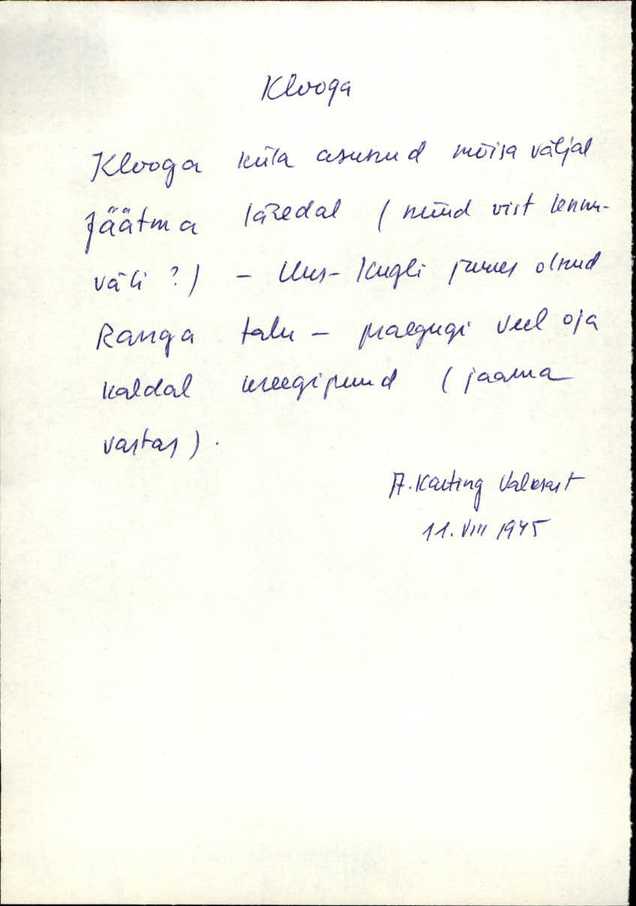 Klooga
Klooga küla asunud mõisa väljal
Jäätma lähedal (nüüd vist lennu-
väli?) - Uus-Kugli juures olnud
Ranga talu - praegugi veel oja
kaldal kreegipuud (jaama
vastas).
A. Karting
11. VIII 1945